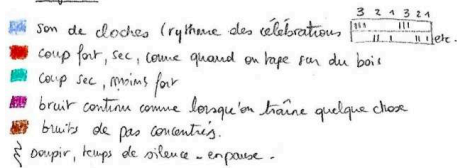 3 2 1 3 2 1
son de cloches (rythme des célébrations etc.
coup fort, sec, comme quand on tape sur du bois
coup sec, moins fort
bruit continu comme lorsqu'on traîne quelque chose
bruits de pas concentrés.
soupir, temps de silence - en pause.